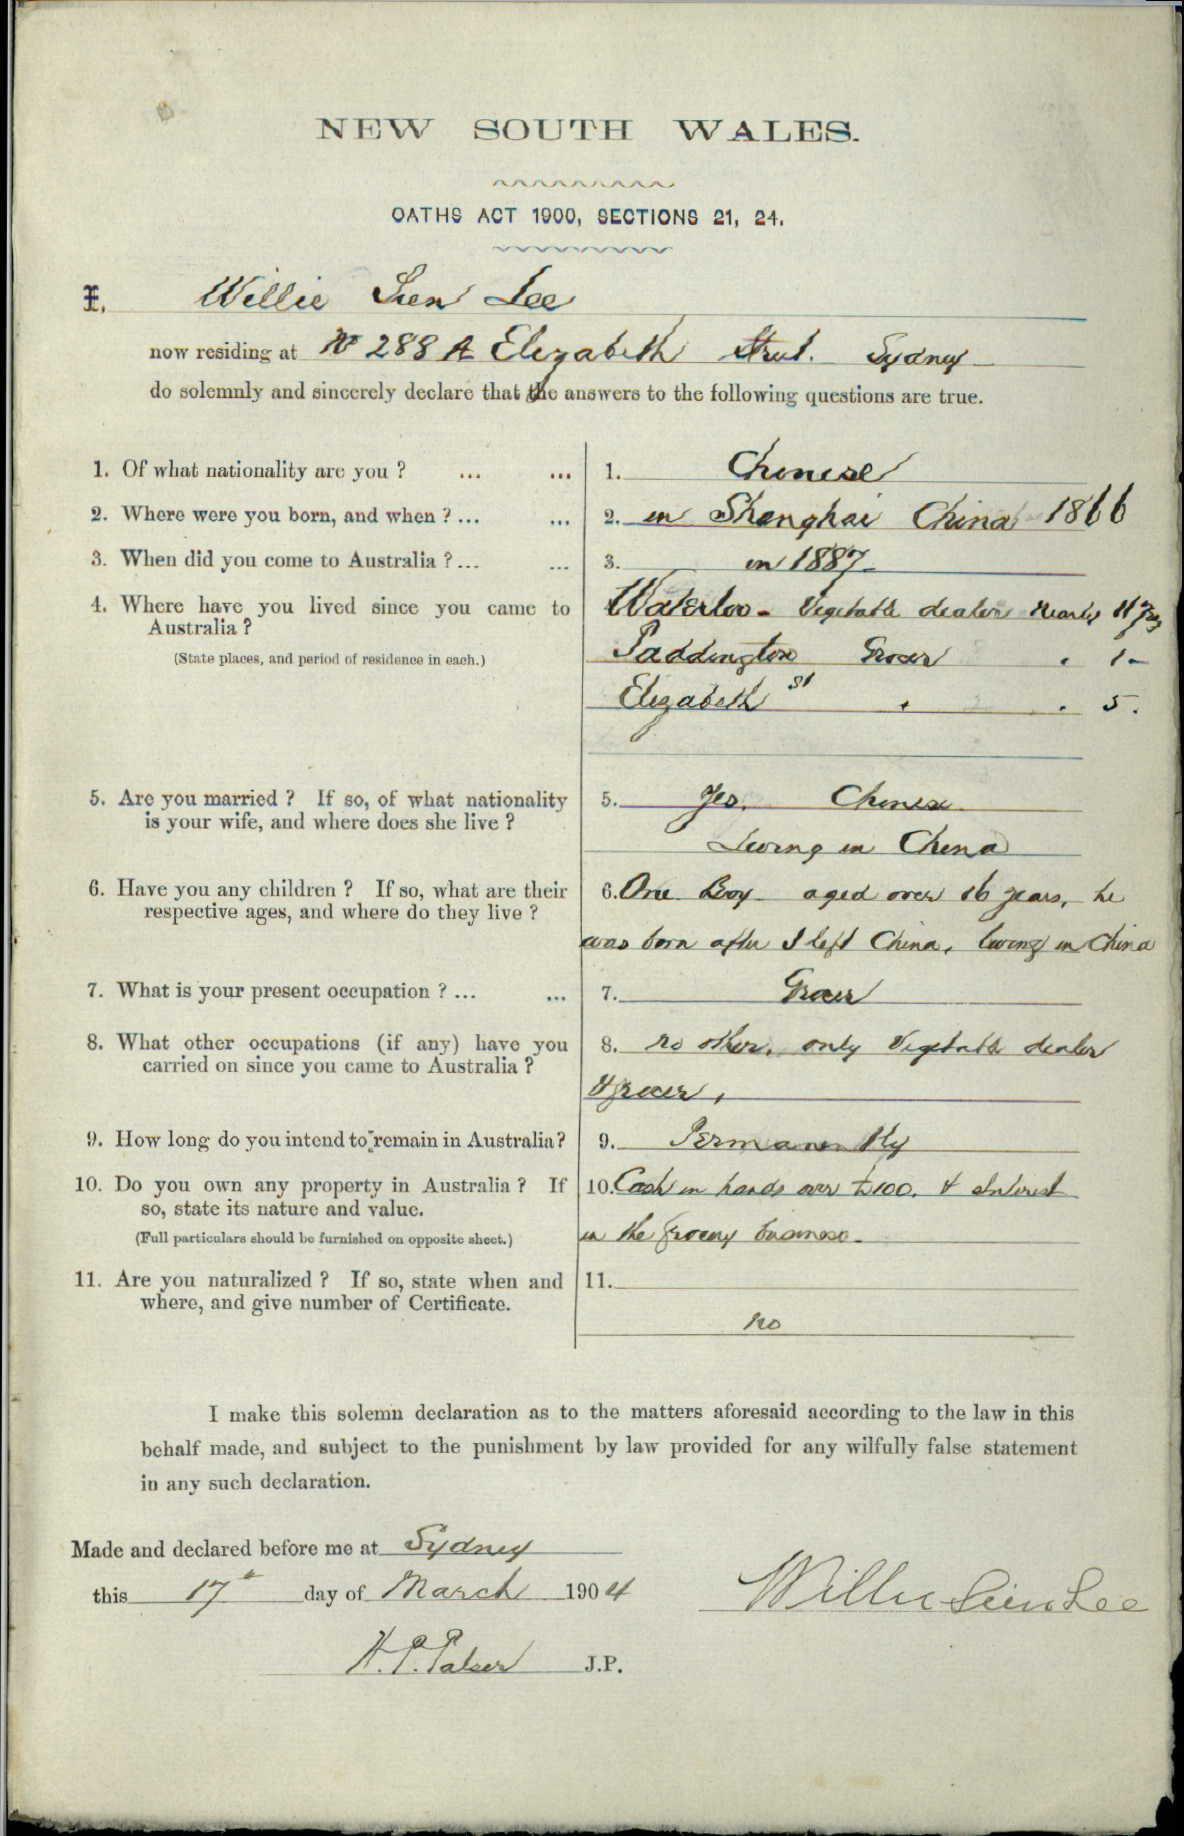 NEW SOUTH WALES.
OATHS ACT 1900, SECTIONS 21, 24.
I, Willie Sien Lee
now residing at No 288 A Elizabeth Street. Sydney
do solemnly and sincerely declare that the answers to the following questions are true.
1. Of what nationality are you ? ... ... 1. Chinese
2. Where were you born, and when ? ... ... 2. in Shanghai China 1866
3. When did you come to Australia ? ... ... 3. in 1887
4. Where have you lived since you came to Waterloo - Vegetable dealer Nearly 11 yrs
Australia ?
(State places, and period of residence in each.) Paddington Grocer " 1 -
Elizabeth St " " 5.
5. Are you married ? If so, of what nationality 5. Yes. Chinese
is your wife, and where does she live ? Living in China
6. Have you any children ? If so, what are their 6. One Boy aged over 16 years, he
respective ages, and where do they live ? was born after I left China, living in China
7. What is your present occupation ? ... ... 7. Grocer
8. What other occupations (if any) have you 8. no other, only Vegetable dealer
carried on since you came to Australia ? & grocer,
9. How long do you intend to remain in Australia ? 9. Permanently
10. Do you own any property in Australia ? If 10. Cash in hands over £100. & Interest
so, state its nature and value. in the grocery business.
(Full particulars should be furnished on opposite sheet.)
11. Are you naturalized ? If so, state when and 11.
where, and give number of Certificate. no
I make this solemn declaration as to the matters aforesaid according to the law in this
behalf made, and subject to the punishment by law provided for any wilfully false statement
in any such declaration.
Made and declared before me at Sydney
this 17th day of March 1904 Willie Sien Lee
H. P. Palser J.P.